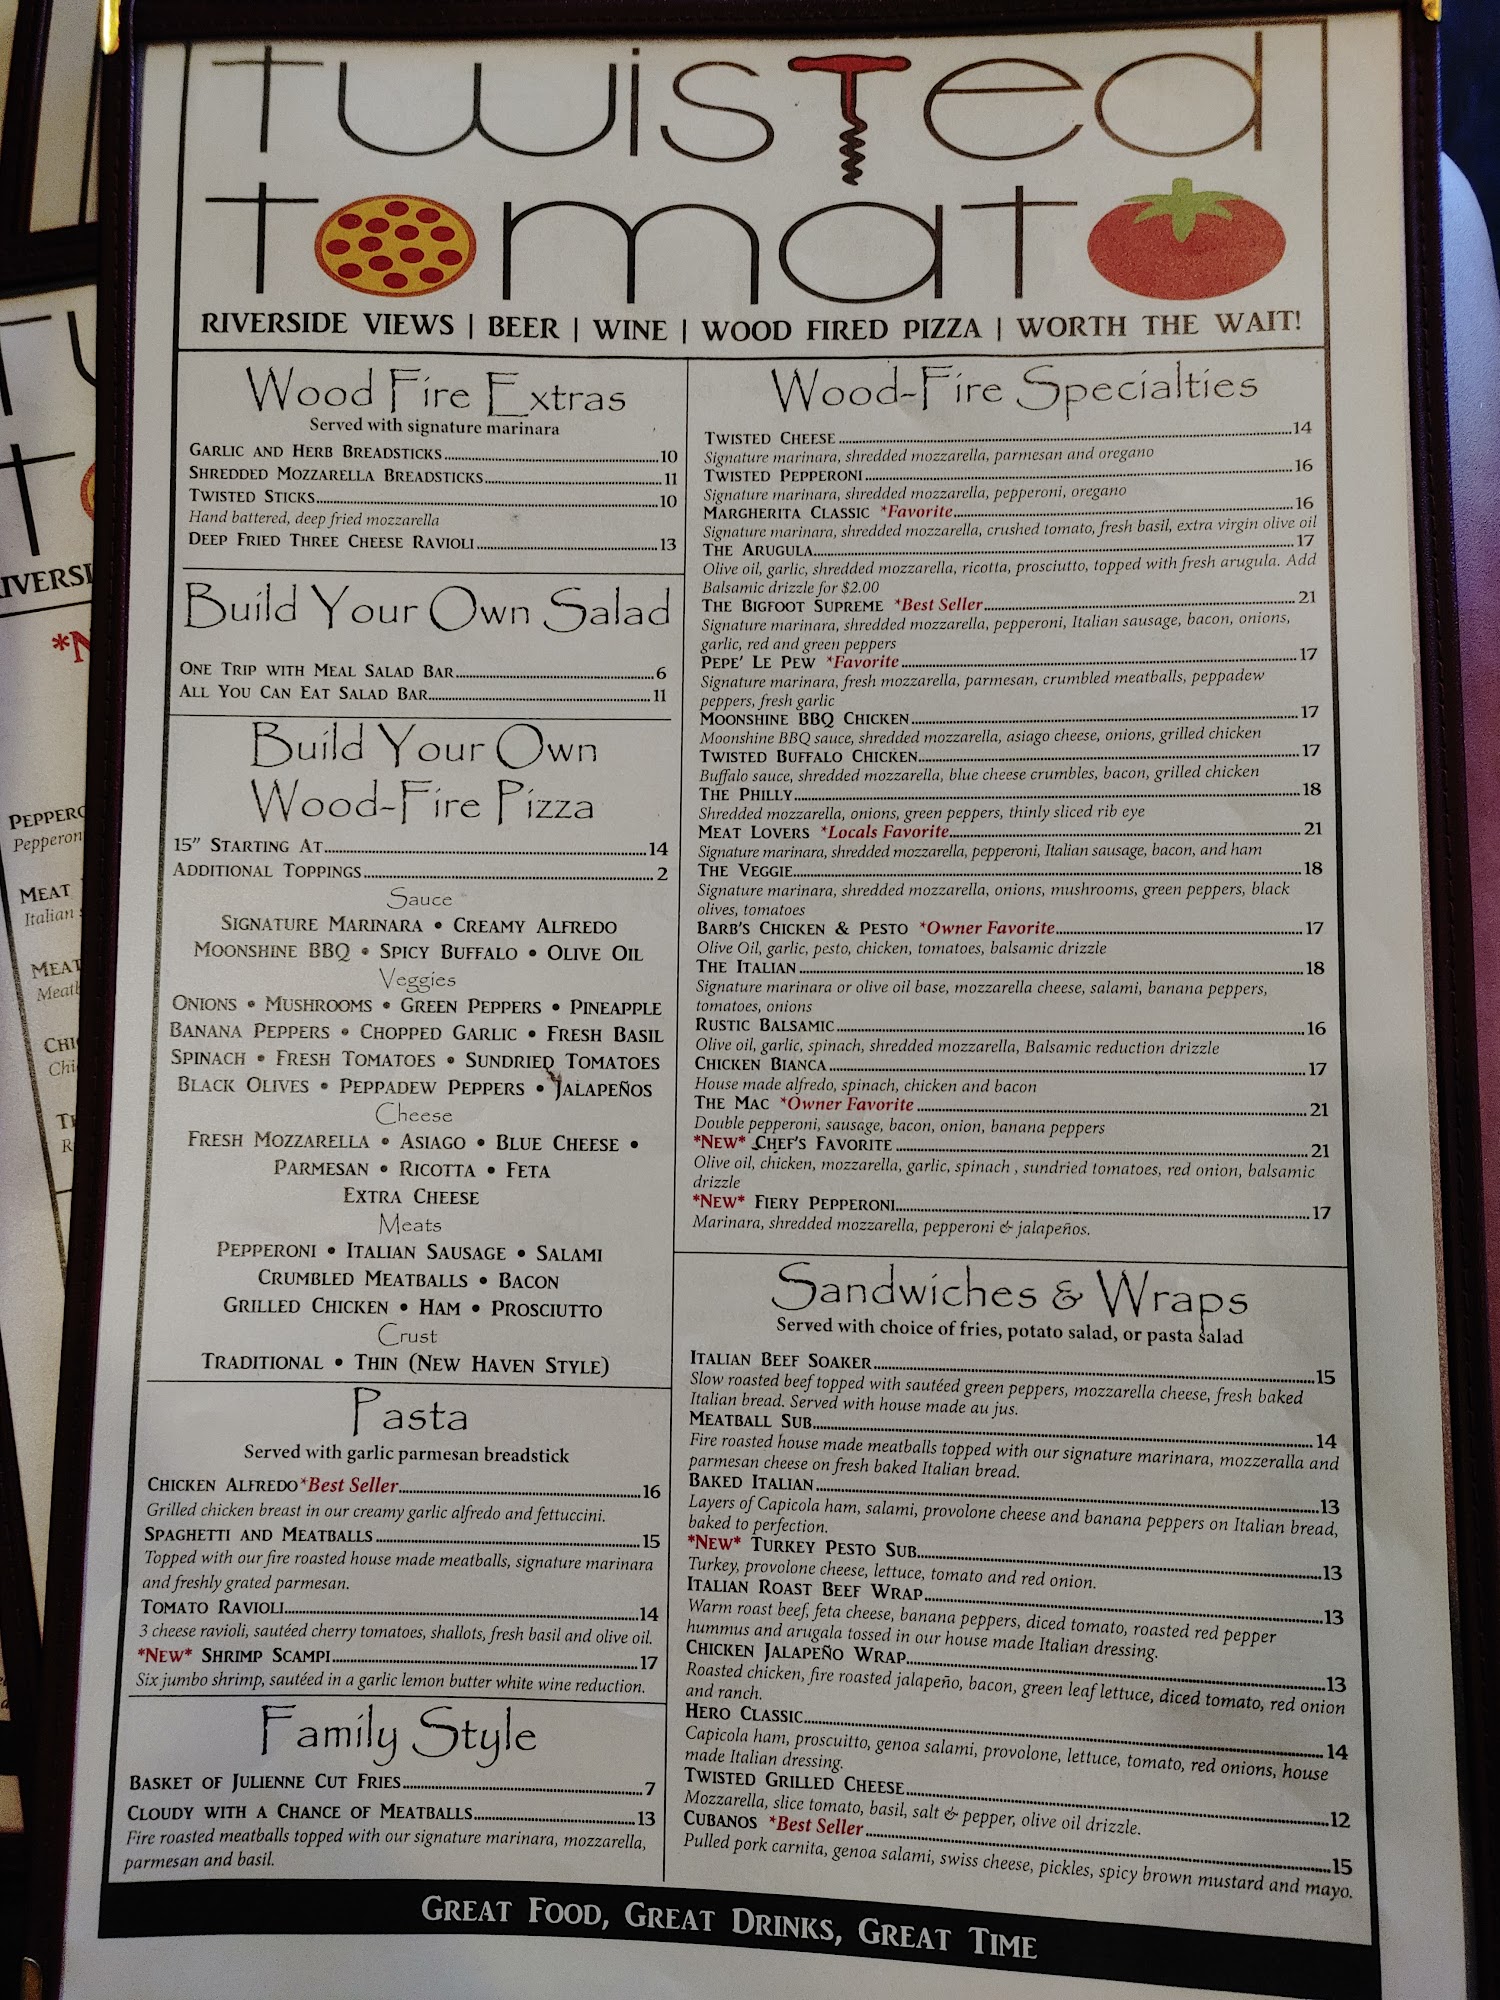 twisted
tomato
RIVERSIDE VIEWS | BEER | WINE | WOOD FIRED PIZZA | WORTH THE WAIT!
Wood Fire Extras
Served with signature marinara
GARLIC AND HERB BREADSTICKS 10
SHREDDED MOZZARELLA BREADSTICKS 11
TWISTED STICKS 10
Hand battered, deep fried mozzarella
DEEP FRIED THREE CHEESE RAVIOLI 13
Build Your Own Salad
ONE TRIP WITH MEAL SALAD BAR 6
ALL YOU CAN EAT SALAD BAR 11
Build Your Own
Wood-Fire Pizza
15" STARTING AT 14
ADDITIONAL TOPPINGS 2
Sauce
SIGNATURE MARINARA • CREAMY ALFREDO
MOONSHINE BBQ • SPICY BUFFALO • OLIVE OIL
Veggies
ONIONS • MUSHROOMS • GREEN PEPPERS • PINEAPPLE
BANANA PEPPERS • CHOPPED GARLIC • FRESH BASIL
SPINACH • FRESH TOMATOES • SUNDRIED TOMATOES
BLACK OLIVES • PEPPADEW PEPPERS • JALAPEÑOS
Cheese
FRESH MOZZARELLA • ASIAGO • BLUE CHEESE •
PARMESAN • RICOTTA • FETA
EXTRA CHEESE
Meats
PEPPERONI • ITALIAN SAUSAGE • SALAMI
CRUMBLED MEATBALLS • BACON
GRILLED CHICKEN • HAM • PROSCIUTTO
Crust
TRADITIONAL • THIN (NEW HAVEN STYLE)
Pasta
Served with garlic parmesan breadstick
CHICKEN ALFREDO *Best Seller 16
Grilled chicken breast in our creamy garlic alfredo and fettuccini.
SPAGHETTI AND MEATBALLS 15
Topped with our fire roasted house made meatballs, signature marinara
and freshly grated parmesan.
TOMATO RAVIOLI 14
3 cheese ravioli, sautéed cherry tomatoes, shallots, fresh basil and olive oil.
*NEW* SHRIMP SCAMPI 17
Six jumbo shrimp, sautéed in a garlic lemon butter white wine reduction.
Family Style
BASKET OF JULIENNE CUT FRIES 7
CLOUDY WITH A CHANCE OF MEATBALLS 13
Fire roasted meatballs topped with our signature marinara, mozzarella,
parmesan and basil.
Wood-Fire Specialties
TWISTED CHEESE 14
Signature marinara, shredded mozzarella, parmesan and oregano
TWISTED PEPPERONI 16
Signature marinara, shredded mozzarella, pepperoni, oregano
MARGHERITA CLASSIC *Favorite 16
Signature marinara, shredded mozzarella, crushed tomato, fresh basil, extra virgin olive oil
THE ARUGULA 17
Olive oil, garlic, shredded mozzarella, ricotta, prosciutto, topped with fresh arugula. Add
Balsamic drizzle for $2.00
THE BIGFOOT SUPREME *Best Seller 21
Signature marinara, shredded mozzarella, pepperoni, Italian sausage, bacon, onions,
garlic, red and green peppers
PEPE' LE PEW *Favorite 17
Signature marinara, fresh mozzarella, parmesan, crumbled meatballs, peppadew
peppers, fresh garlic
MOONSHINE BBQ CHICKEN 17
Moonshine BBQ sauce, shredded mozzarella, asiago cheese, onions, grilled chicken
TWISTED BUFFALO CHICKEN 17
Buffalo sauce, shredded mozzarella, blue cheese crumbles, bacon, grilled chicken
THE PHILLY 18
Shredded mozzarella, onions, green peppers, thinly sliced rib eye
MEAT LOVERS *Locals Favorite 21
Signature marinara, shredded mozzarella, pepperoni, Italian sausage, bacon, and ham
THE VEGGIE 18
Signature marinara, shredded mozzarella, onions, mushrooms, green peppers, black
olives, tomatoes
BARB'S CHICKEN & PESTO *Owner Favorite 17
Olive Oil, garlic, pesto, chicken, tomatoes, balsamic drizzle
THE ITALIAN 18
Signature marinara or olive oil base, mozzarella cheese, salami, banana peppers,
tomatoes, onions
RUSTIC BALSAMIC 16
Olive oil, garlic, spinach, shredded mozzarella, Balsamic reduction drizzle
CHICKEN BIANCA 17
House made alfredo, spinach, chicken and bacon
THE MAC *Owner Favorite 21
Double pepperoni, sausage, bacon, onion, banana peppers
*NEW* CHEF'S FAVORITE 21
Olive oil, chicken, mozzarella, garlic, spinach , sundried tomatoes, red onion, balsamic
drizzle
*NEW* FIERY PEPPERONI 17
Marinara, shredded mozzarella, pepperoni & jalapeños.
Sandwiches & Wraps
Served with choice of fries, potato salad, or pasta salad
ITALIAN BEEF SOAKER 15
Slow roasted beef topped with sautéed green peppers, mozzarella cheese, fresh baked
Italian bread. Served with house made au jus.
MEATBALL SUB 14
Fire roasted house made meatballs topped with our signature marinara, mozzeralla and
parmesan cheese on fresh baked Italian bread.
BAKED ITALIAN 13
Layers of Capicola ham, salami, provolone cheese and banana peppers on Italian bread,
baked to perfection.
*NEW* TURKEY PESTO SUB 13
Turkey, provolone cheese, lettuce, tomato and red onion.
ITALIAN ROAST BEEF WRAP 13
Warm roast beef, feta cheese, banana peppers, diced tomato, roasted red pepper
hummus and arugala tossed in our house made Italian dressing.
CHICKEN JALAPEÑO WRAP 13
Roasted chicken, fire roasted jalapeño, bacon, green leaf lettuce, diced tomato, red onion
and ranch.
HERO CLASSIC 14
Capicola ham, proscuitto, genoa salami, provolone, lettuce, tomato, red onions, house
made Italian dressing.
TWISTED GRILLED CHEESE 12
Mozzarella, slice tomato, basil, salt & pepper, olive oil drizzle.
CUBANOS *Best Seller 15
Pulled pork carnita, genoa salami, swiss cheese, pickles, spicy brown mustard and mayo.
GREAT FOOD, GREAT DRINKS, GREAT TIME